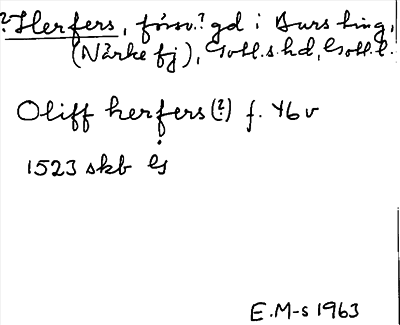 ? Herfers, försv.? gd i Burs ting,
(Närke fj), Gotl.s.hd, Gotl.l.
Oliff herfers (?) f. 46 v
1523 skb
E.M-s 1963